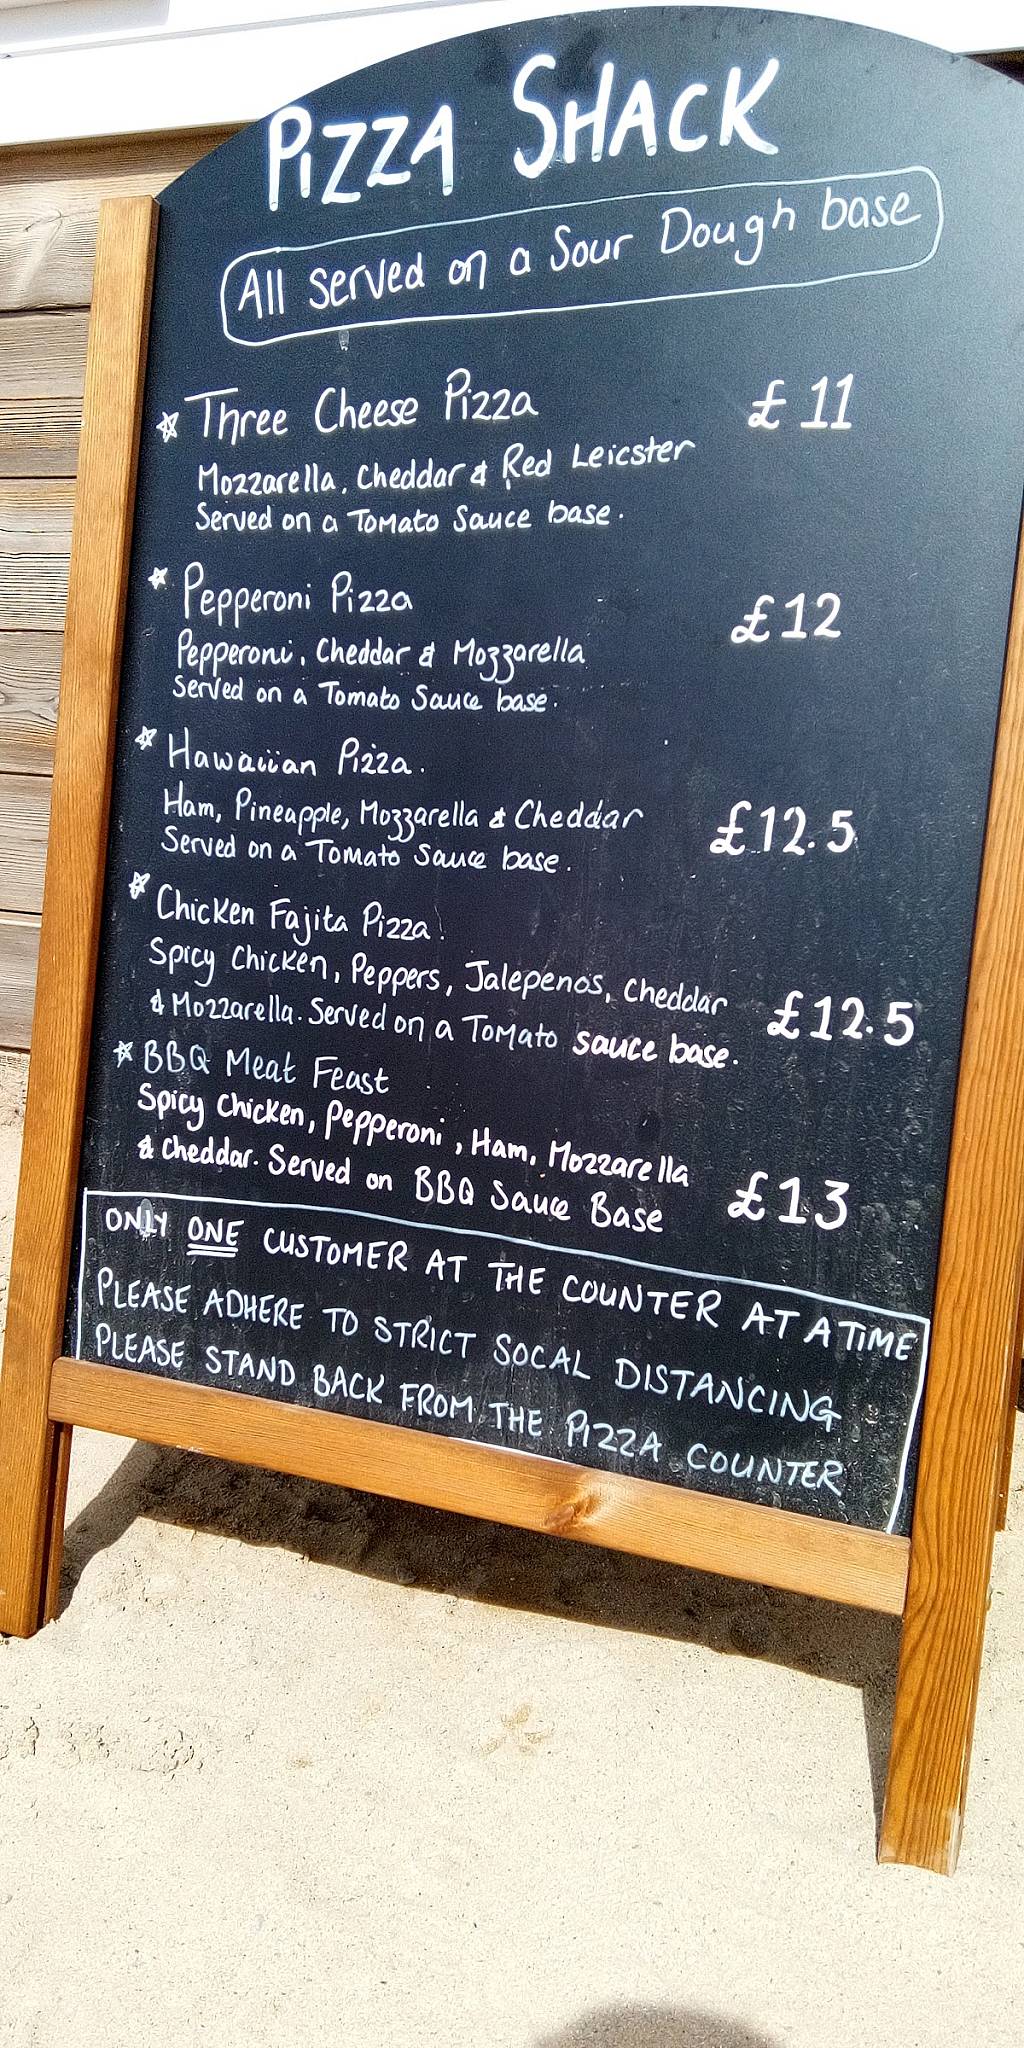 PIZZA SHACK
All served on a Sour Dough base
Three Cheese Pizza £11
Mozzarella, Cheddar & Red Leicster
Served on a Tomato Sauce base.
Pepperoni Pizza £12
Pepperoni, Cheddar & Mozzarella
Served on a Tomato Sauce base.
Hawaiian Pizza.
Ham, Pineapple, Mozzarella & Cheddar £12.5
Served on a Tomato Sauce base.
Chicken Fajita Pizza.
Spicy Chicken, Peppers, Jalepenos, Cheddar £12.5
& Mozzarella. Served on a Tomato sauce base.
BBQ Meat Feast
Spicy Chicken, Pepperoni, Ham, Mozzarella £13
& Cheddar. Served on BBQ Sauce Base
ONLY ONE CUSTOMER AT THE COUNTER AT A TIME
PLEASE ADHERE TO STRICT SOCAL DISTANCING
PLEASE STAND BACK FROM THE PIZZA COUNTER